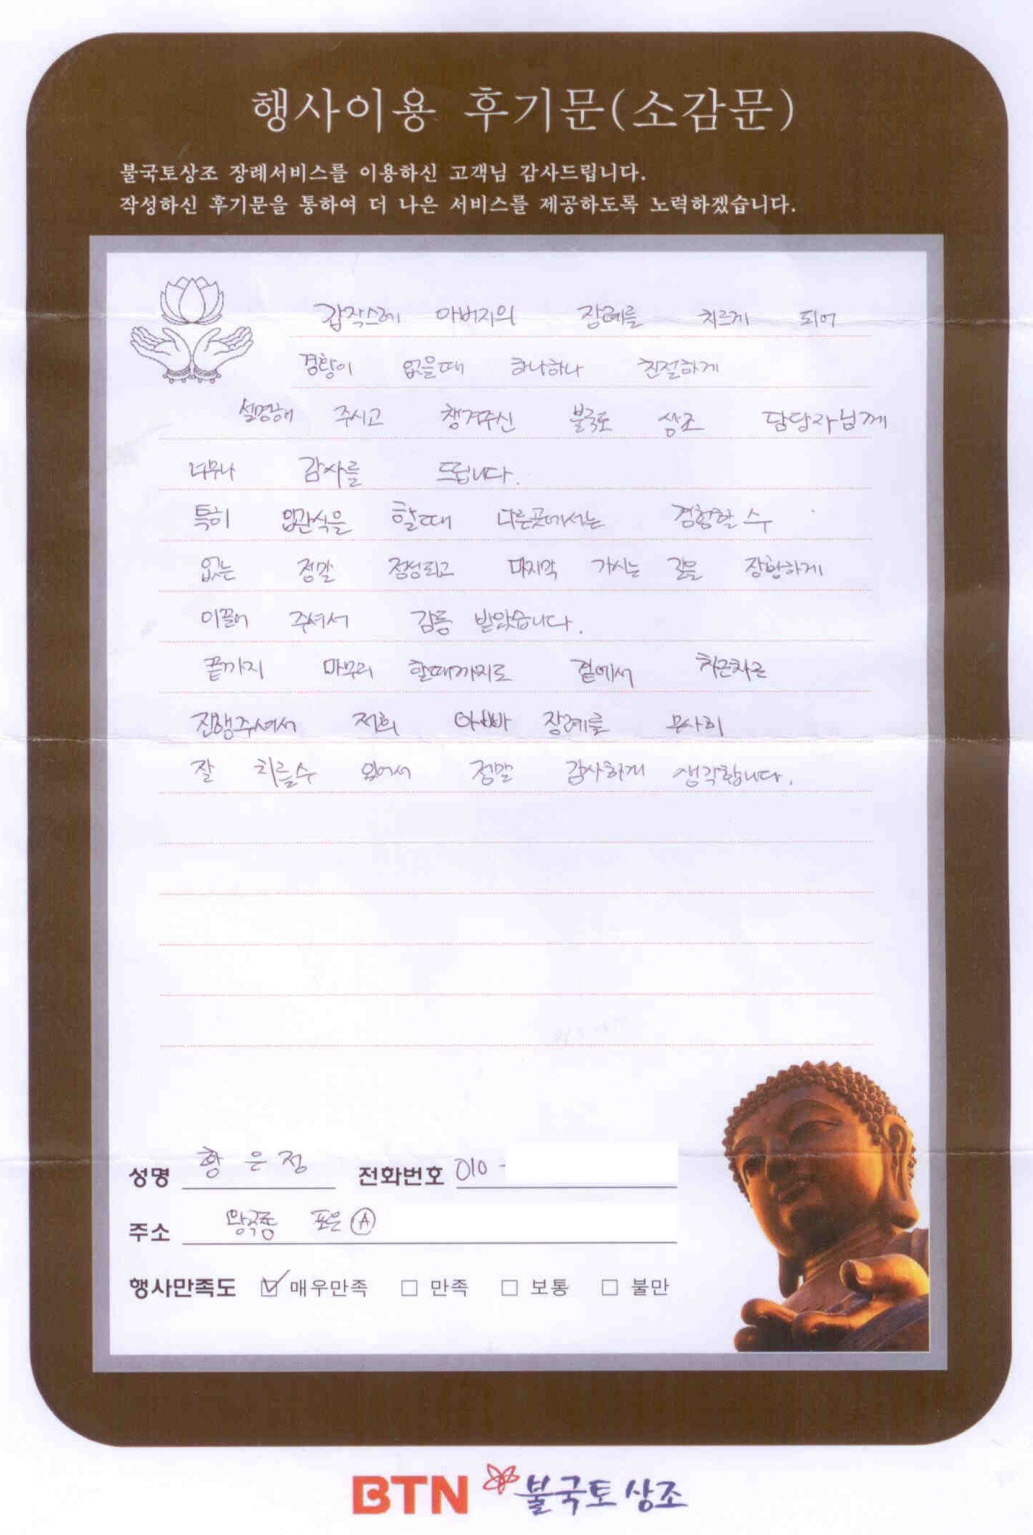 행사이용 후기문(소감문)
불국토상조 장례서비스를 이용하신 고객님 감사드립니다.
작성하신 후기문을 통하여 더 나은 서비스를 제공하도록 노력하겠습니다.
갑작스레 아버지의 장례를 치르게 되어
경황이 없을때 하나하나 친절하게
설명해 주시고 챙겨주신 불국토 상조 담당자님께
너무나 감사를 드립니다.
특히 입관식을 할때 다른곳에서는 경험할 수
없는 정말 정성되고 마지막 가시는 길을 장황하게
이끌어 주셔서 감동 받았습니다.
끝까지 마무리 할때까지도 곁에서 차근차근
진행주셔서 저희 아빠 장례를 무사히
잘 치를수 있어서 정말 감사하게 생각합니다.
성명 황은정 전화번호 010 -
주소 포은 Ⓐ
행사만족도 ☑ 매우만족 □ 만족 □ 보통 □ 불만
BTN 불국토상조